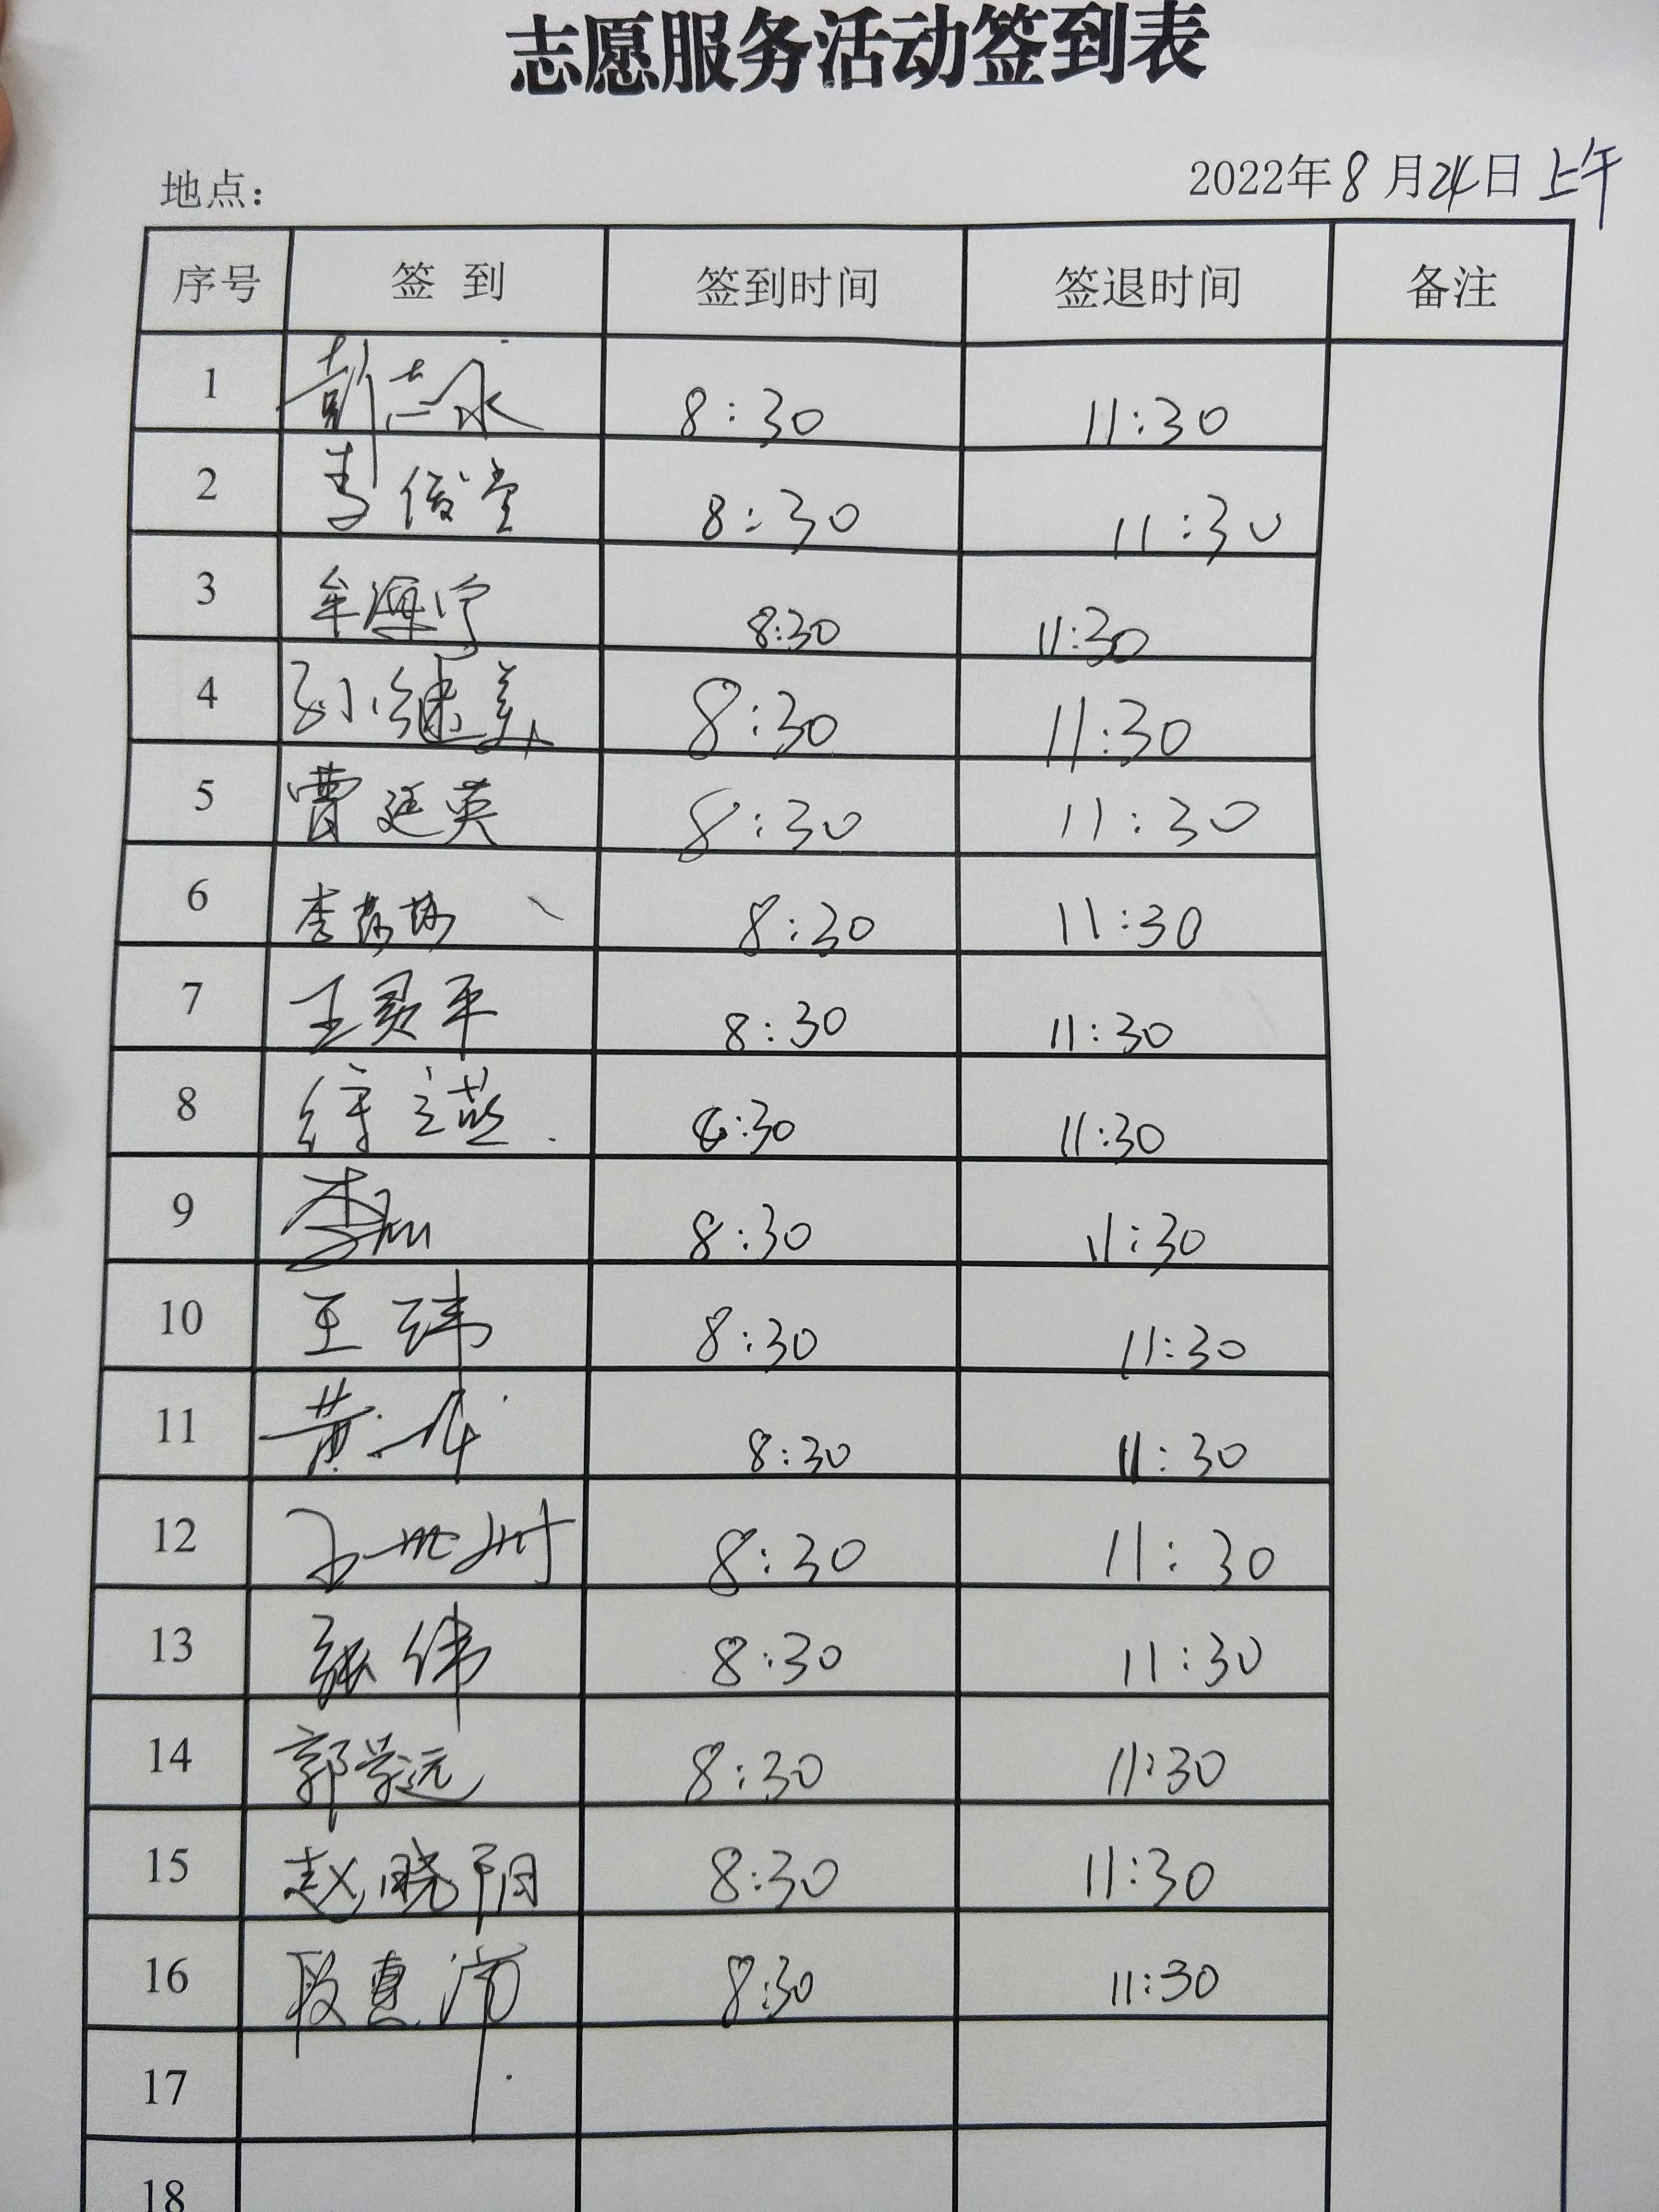 志愿服务活动签到表
地点：
2022年8月24日上午
序号 签到 签到时间 签退时间 备注
1 彭志永 8:30 11:30
2 李俊堂 8:30 11:30
3 牟海宁 8:30 11:30
4 孙继美 8:30 11:30
5 曹廷英 8:30 11:30
6 李 8:30 11:30
7 王灵平 8:30 11:30
8 :30 11:30
9 李 8:30 11:30
10 王玮 8:30 11:30
11 黄 8:30 11:30
12 8:30 11:30
13 张伟 8:30 11:30
14 郭学远 8:30 11:30
15 赵晓阳 8:30 11:30
16 段惠 8:30 11:30
17
18